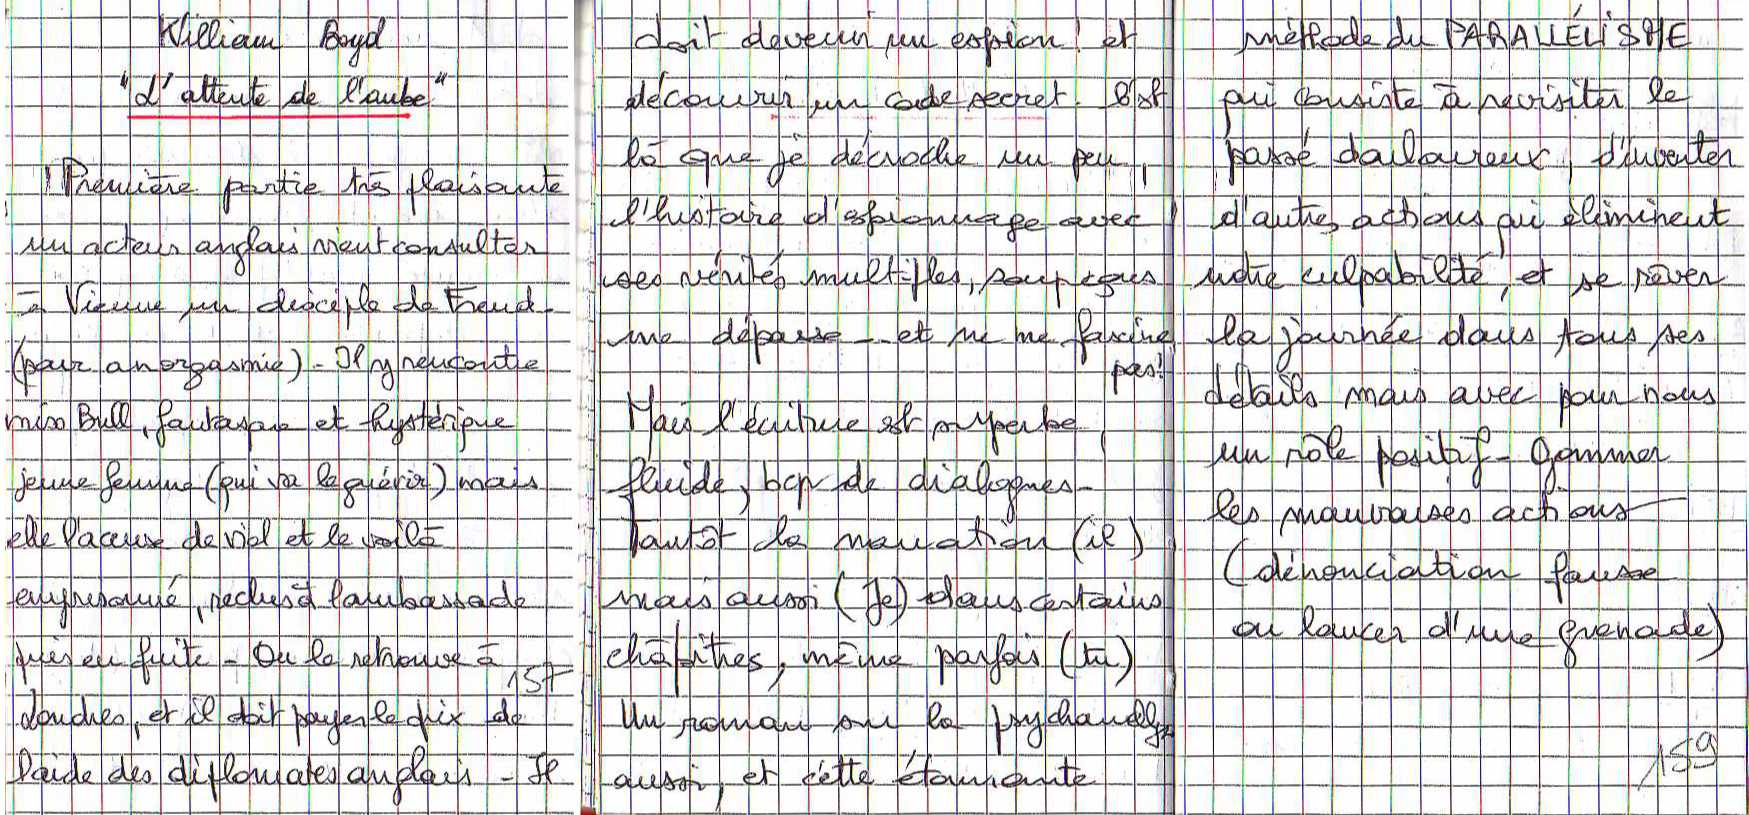 William Boyd
"L'attente de l'aube"
Première partie très plaisante
un acteur anglais vient consulter
à Vienne un disciple de Freud -
(pour anorgasmie) - Il y rencontre
miss Bull, fantasque et hystérique
jeune femme (qui va le guérir) mais
elle l'accuse de viol et le voilà
emprisonné, reclus à l'ambassade
puis en fuite - On le retrouve à
157
Londres, et il doit payer le prix de
l'aide des diplomates anglais - Il
doit devenir un espion ! et
découvrir un code secret. C'est
là que je décroche un peu,
l'histoire d'espionnage avec
ses vérités multiples, soupçons
me dépasse - et ne me fascine
pas!
Mais l'écriture est superbe,
fluide, bcp de dialogues -
Tantôt de la narration (il)
mais aussi (Je) dans certains
chapîtres, même parfois (tu)
Un roman sur la psychanalyse
aussi, et cette étonnante
méthode du PARALLÉLISME
qui consiste à revisiter le
passé douloureux, d'inventer
d'autres actions qui éliminent
notre culpabilité, et se rêver
la journée dans tous ses
détails mais avec pour nous
un rôle positif - Gommer
les mauvaises actions
(dénonciation fausse
ou lancer d'une grenade)
159